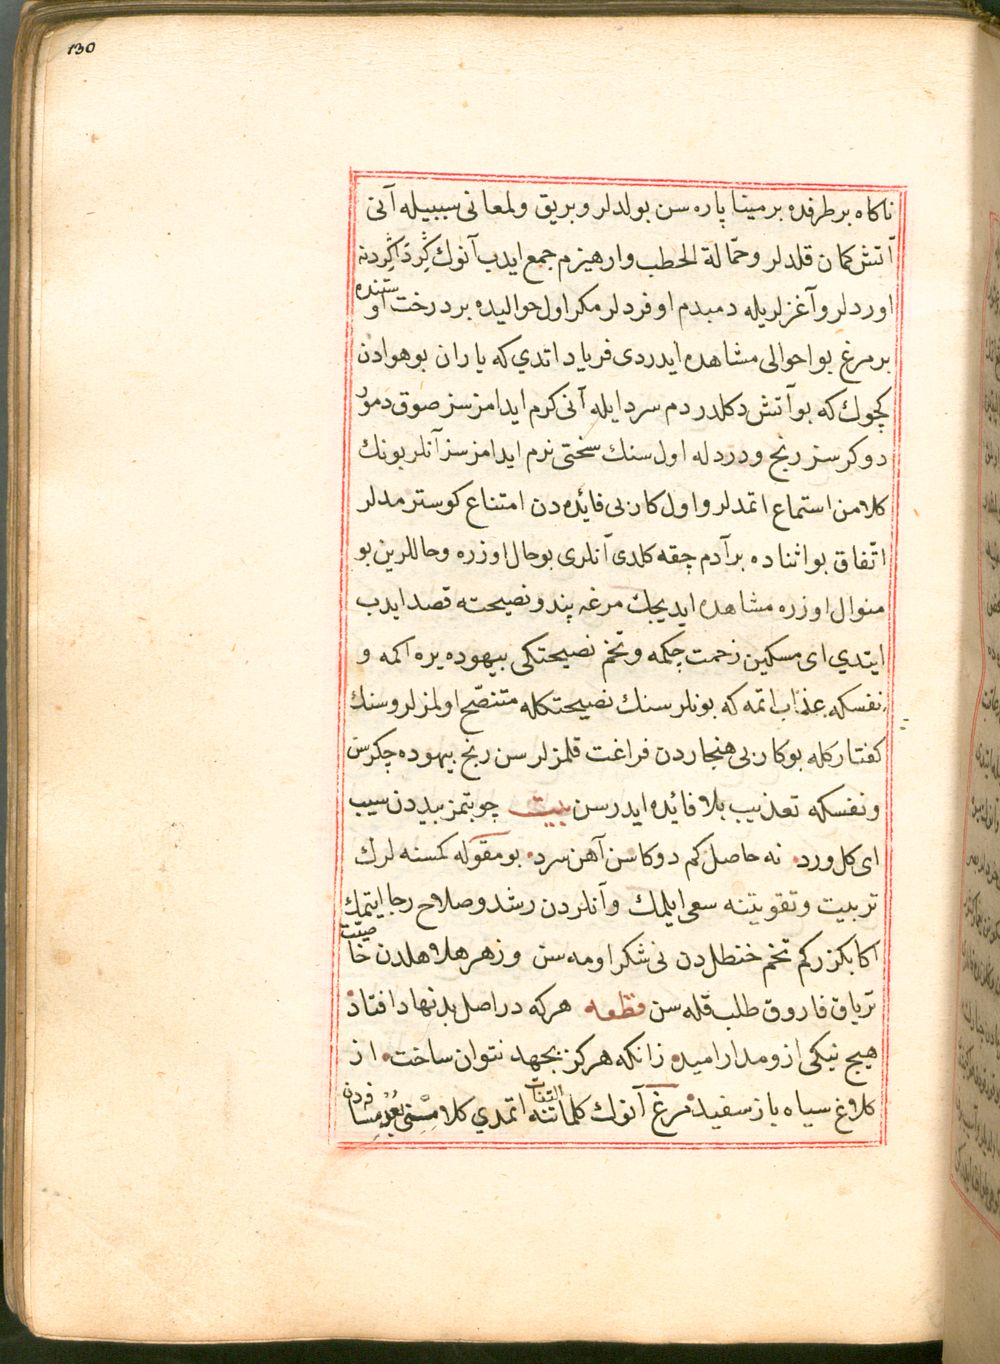 130
ناكاه بر طرفده بر مينا پاره سن بولدلر و بريق و لمعانى سببيله آنى
آتش كمان قلدلر و حمّالة الحطب وار هيزم جمع ايدب آنوك كِرد آكِردنه
اوردلر و آغزلريله دمبدم اوفردلر مكر اول حواليده بر درخت اوستنده
بر مرغ بو احوالى مشاهده ايدردى فرياد اتدي كه ياران بو هوادن
كچوك كه بو آتش دكلدر دم سرد ايله آنى كرم ايدامزسز صوق دمور
دوكرسز رنج و دردله اول سنك سختى نرم ايدامزسز آنلر بونك
كلامن استماع اتمدلر و اول كار بى فائده دن امتناع كوسترمدلر
اتّفاق بو اثناده بر آدم چقه كلدى آنلرى بو حال اوزره و حاللرين بو
منوال اوزره مشاهده ايديجك مرغه پند و نصيحته قصد ايدب
ايتدي اى مسكين زحمت چكمه و تخم نصيحتكى بيهوده يره اكمه و
نفسكه عذاب اتمه كه بونلر سنك نصيحتكله متنصّح اولمزلر و سنك
كفتاركله بو كار بى هنجاردن فراغت قلمزلر سن رنج بيهوده چكرسن
و نفسكه تعذيب بلا فائده ايدرسن بيت چو بتمز بيددن سيب
اى كل ورد نه حاصل كم دوكاسن آهن سرد بو مقوله كمسنه لرك
تربيت و تقويتنه سعى ايلمك و آنلردن رشد و صلاح رجا ايتمك
اكا بكزر كم تخم خنطلدن نى شكر اومه سن و زهر هلاهلدن خاصيّت
ترياق فاروق طلب قله سن قطعه هركه در اصل بد نهاد افتاد
هيچ نيكى ازو مدار اميد زانكه هركز بجهد نتوان ساخت از
كلاغ سياه باز سفيد مرغ آنوك كلماتنه التفات اتمدي كلامسنى بُعْدِ مسافه دن